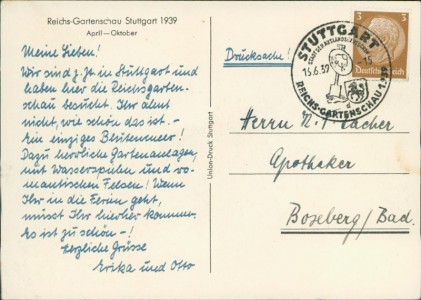 Reichs-Gartenschau Stuttgart 1939
April—Oktober
Meine Lieben!
Wir sind z. Zt. in Stuttgart und
haben hier die Reichsgarten-
schau besucht. Ihr ahnt
nicht, wie schön das ist. -
Ein einziges Blütenmeer!
Dazu herrliche Gartenanlagen
mit Wasserspielen und ro-
mantischen Felsen! Wenn
Ihr in die Ferien geht,
müsst Ihr hierher kommen.
Es ist zu schön -!
Herzliche Grüsse
Erika und Otto
Union-Druck Stuttgart
Drucksache!
STUTTGART
15.6.39
REICHS-GARTENSCHAU
3 3
Deutsches Reich
Herrn
Apotheker
Boxberg/Bad.